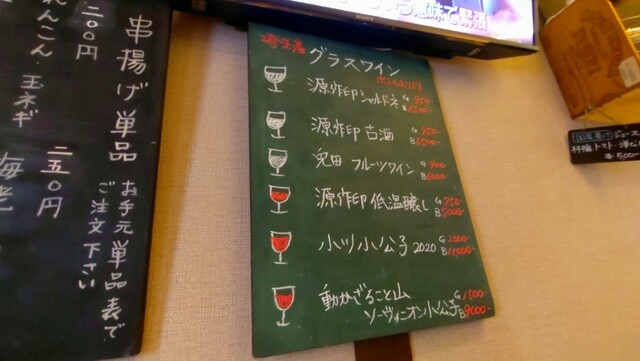 串揚げ単品
お手元単品表で
ご注文下さい
二〇〇円
れんこん・玉ネギ
二五〇円
海老
SONY
埼玉産 グラスワイン
ボトルあります
源作印シャルドネ G 950- B 6500-
源作印 古酒 G 950- B 6500-
兎田 フルーツワイン G 900 B 6000-
源作印 低温醸し G 750- B 5000-
小ツ小公子 2020 G 2000- B 11000-
動かざること山
ソーヴィニオン小公子 G 1500- B 9000-
国産果汁 ジュース
トマト
500-